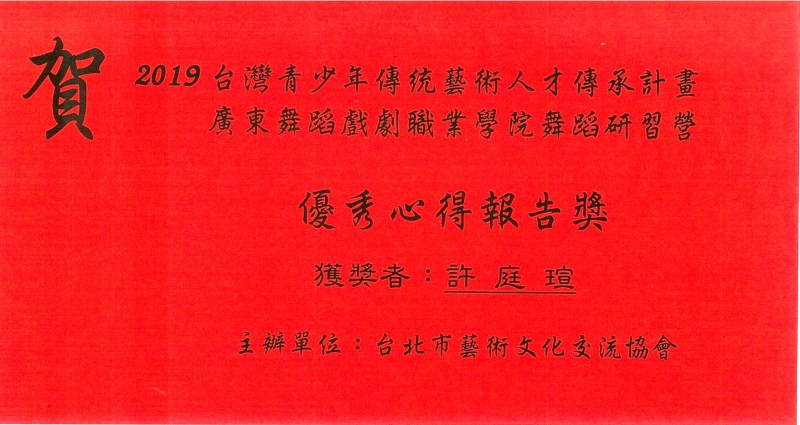 賀
2019台灣青少年傳統藝術人才傳承計畫
廣東舞蹈戲劇職業學院舞蹈研習營
優秀心得報告獎
獲獎者：許庭瑄
主辦單位：台北市藝術文化交流協會